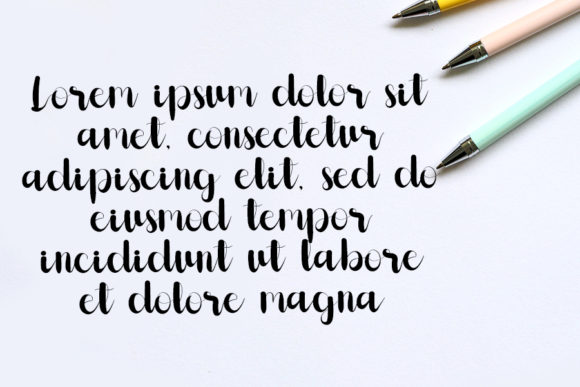 Lorem ipsum dolor sit
amet, consectetur
adipiscing elit, sed do
eiusmod tempor
incididunt ut labore
et dolore magna